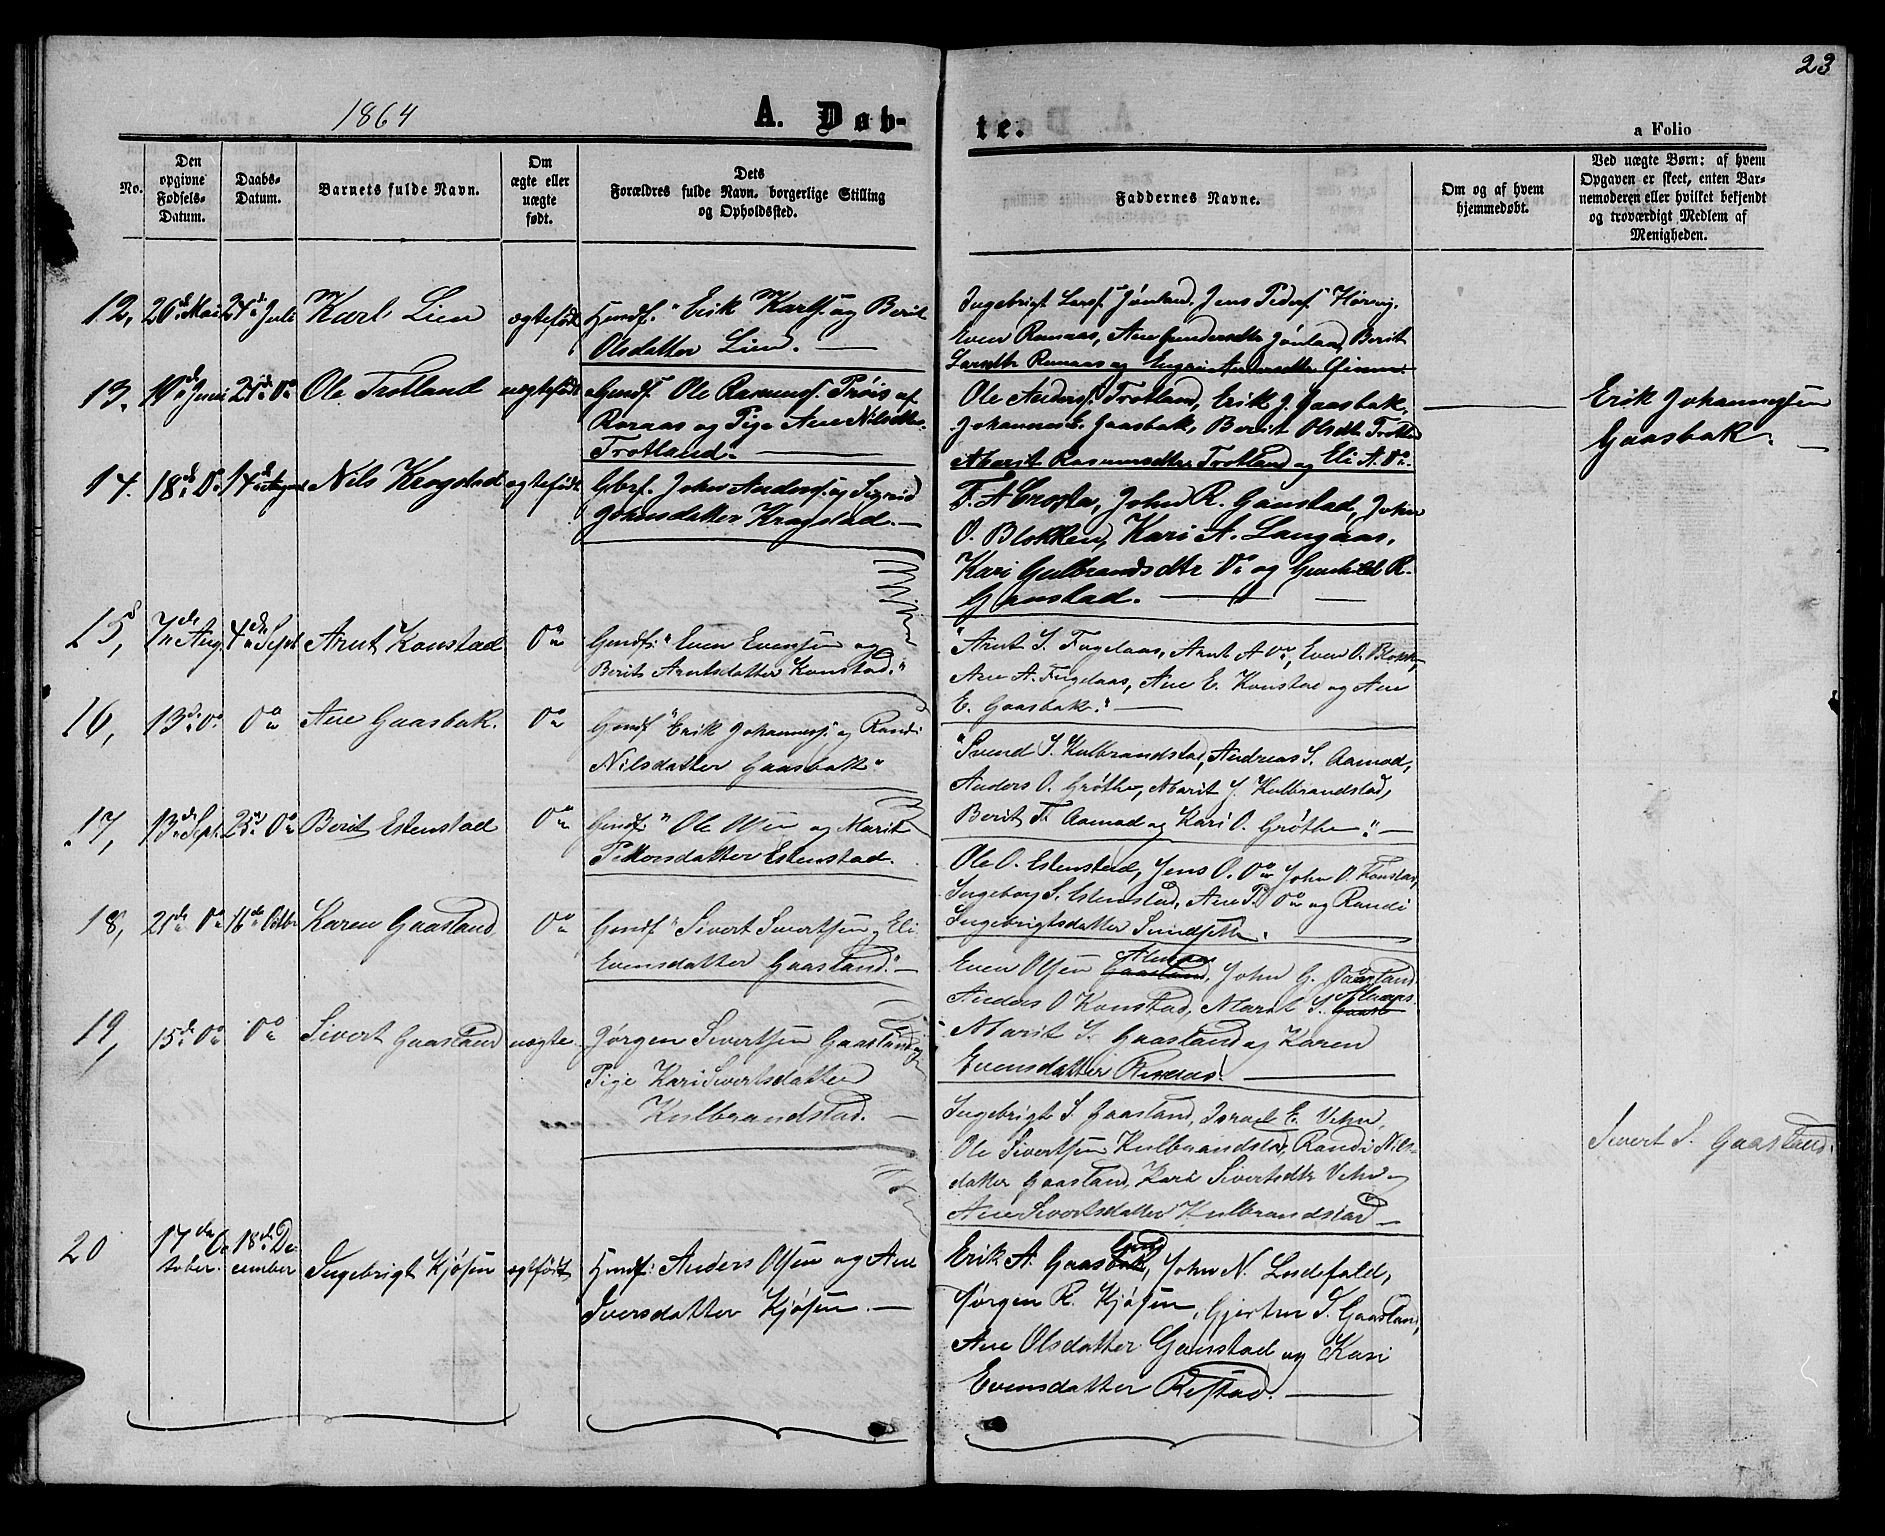 23
1864
A. Døb-
te.
a Folio
No.
Den opgivne Fødsels-Datum.
Daabs-Datum.
Barnets fulde Navn.
Om ægte eller uægte født.
Dets Forældres fulde Navn, borgerlige Stilling og Opholdssted.
Faddernes Navne.
Om og af hvem hjemmedøbt.
Ved uægte Børn: af hvem Opgaven er skeet, enten Barnemoderen eller hvilket bekjendt og troværdigt Medlem af Menigheden.
12, 26de Mai 24de Juli Karl Lien ægtefødt
Erik Karls. og Berit
Olsdatter Lien. —
Ingebrigt Larss. Jønland, Jens Peders.
Even Ramaas, Ane Jønland, Berit
Larsdtr Ramaas og
13. 10de Juni 24de Do Ole Trotland uægtefødt
Gmdf. Ole Rasmuss. Prøis af
Roraas og Pige Ane Nilsdtr
Trotland. —
Ole Anders. Trotland, Erik J. Gaasbak,
Johannes E. Gaasbak, Berit Olsdtr Trotland
Marit Rasmusdtr Trotland og Eli A. Do.
Erik Johannesen
Gaasbak. —
14. 18de Do 14de August Nils Krogstad ægtefødt
Gbrf. John Anders. og Sigrid
Johnsdatter Krogstad. —
John R. Gaustad, John
O. Blokken, Kari A. Langaas,
Kari Gulbrandsdtr Do og Gunhild R.
Gaustad. —
15, 7de Aug. 4de Sept. Arnt Konstad Do
Gmdf: "Even Evensen og
Berit Arntsdatter Konstad."
"Arnt S. Fuglaas, Arnt A Do, Even O. Blokk
Ane A. Fuglaas, Ane E. Konstad og Ane
E. Gaasbak." —
16, 13de Do Do Ane Gaasbak. Do
Gmdf "Erik Johanness. og Randi
Nilsdatter Gaasbak"
"Svend S. Kulbrandstad, Andreas S. Aamod,
Anders O. Grøthe, Marit J. Kulbrandstad,
Berit T. Aamod og Kari O. Grøthe." —
17, 13de Sept. 25de Do Berit Estenstad Do
Gmdf: "Ole Olsen og Marit
Pettersdatter Estenstad.
Ole O. Estenstad, Jens O. Do John O. Konstad,
Ingeborg S. Estenstad, Ane P. Do og Randi
Ingebrigtsdatter
18, 21de Do 16de Octbr Karen Gaasland Do
Gmdf "Sivert Sivertsen og Eli
Evensdatter Gaasland." —
Even Olsen Gaasland, John G. Gaasland
Anders O Konstad, Marit S.
Marit S. Gaasland og Karen
Evensdatter —
19, 15de Do Do Sivert Gaasland uægte.
Jørgen Sivertsen Gaasland og
Pige Kari Sivertsdatter
Kulbrandstad. —
Ingebrigt S. Gaasland, Israel E. Vehn,
Ole Sivertsen Kulbrandstad, Randi Nils-
datter Gaasland, Kari Sivertsdtr Vehn og
Ane Sivertsdatter Kulbrandstad —
Sivert S. Gaasland.
20 17de October. 18de December Ingebrigt Kjøsen ægtefødt
Anders Olsen og Ane
Iversdatter Kjøsen. —
Erik A. Gaasbak, John N. Ludefald,
Jørgen R. Kjøsen, Gjertru S. Gaasland,
Ane Olsdatter Gaustad og Kari
Evensdatter Refstad. —